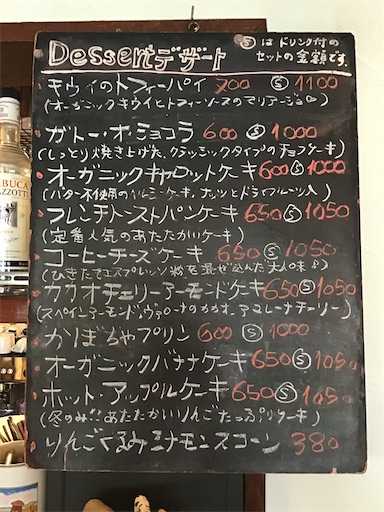 Dessert デザート
Ⓢは ドリンク付の
セットの金額です。
キウィのトフィーパイ 700 Ⓢ 1100
(オーガニックキウイとトフィーソースのマリアージュ)
ガトー・オ・ショコラ 600 Ⓢ 1000
(しっとり焼き上げた、クラッシックタイプのチョコケーキ)
オーガニックキャロットケーキ 600 Ⓢ 1000
(バター不使用のヘルシーケーキ。ナッツとドライフルーツ入)
フレンチトーストパンケーキ 650 Ⓢ 1050
(定番人気のあたたかいケーキ)
コーヒーチーズケーキ 650 Ⓢ 1050
(ひきたてエスプレッソ粉を混ぜ込んだ大人の味♪)
カカオチェリーアーモンドケーキ 650 Ⓢ 1050
(スペインアーモンド、ヴァローナのカカオ、アマレーナチェリー)
かぼちゃプリン 600 Ⓢ 1000
オーガニックバナナケーキ 650 Ⓢ 1050
ホット・アップルケーキ 650 Ⓢ 1050
(冬のみ!! あたたかいりんごたっぷりケーキ)
りんごくるみシナモンスコーン 380